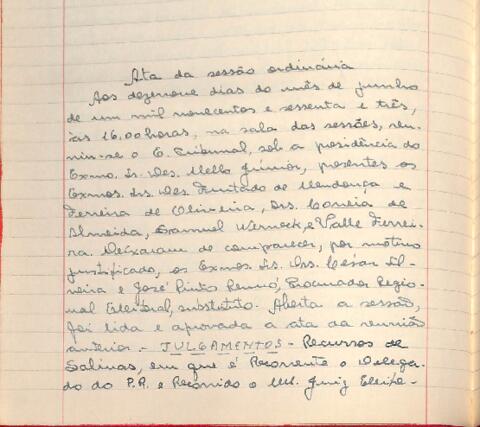 Ata da sessão ordinária
Aos dezenove dias do mês de junho
de um mil novecentos e sessenta e três,
às 16.00 horas, na sala das sessões, reu-
niu-se o E. Tribunal, sob a presidência do
Exmo. Sr. Des. Mello Júnior, presentes os
Exmos. Srs. Des. Furtado de Mendonça e
Ferreira de Oliveira, Drs. Correia de
Almeida, Samuel Werneck, e Valle Ferrei-
ra. Deixaram de comparecer, por motivo
justificado, os Exmos. Srs. Drs. César Sil-
veira e José Pinto Renno, Procurador Regio-
nal Eleitoral, substituto. Aberta a sessão,
foi lida e aprovada a ata da reunião
anterior. - JULGAMENTOS - Recursos de
Salinas, em que é Recorrente o Delega-
do do P.R. e Recorrido o M. Juiz Eleito-